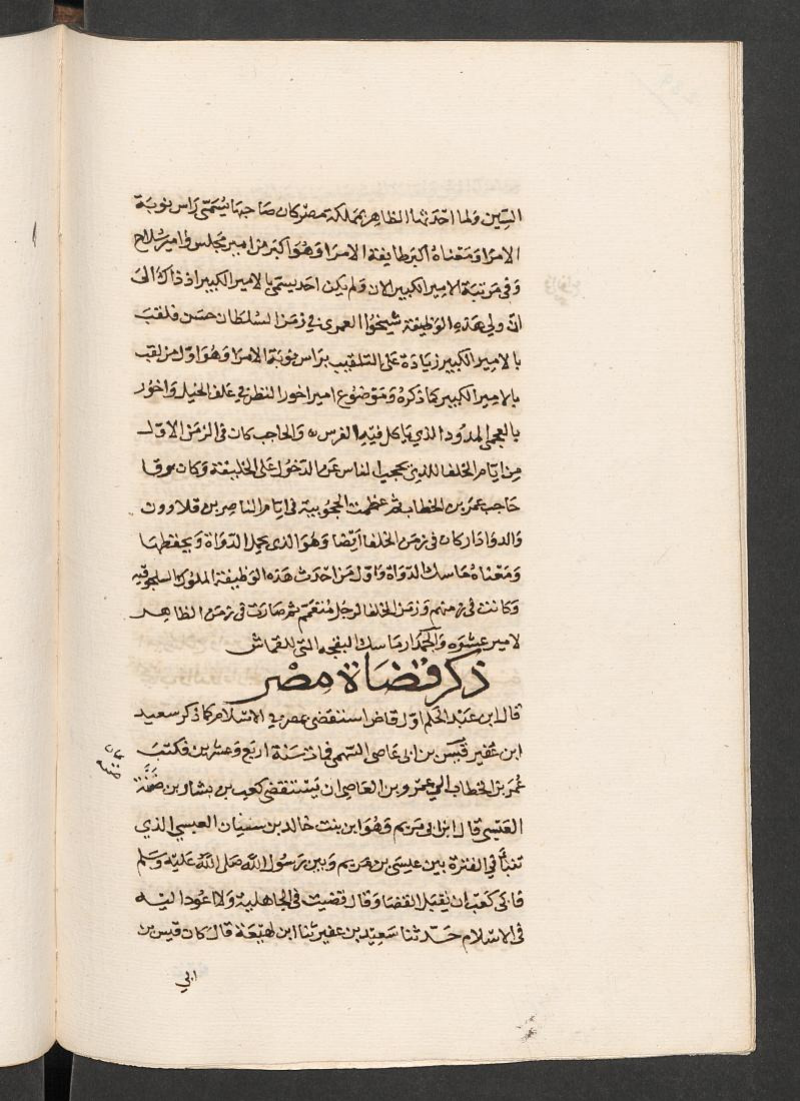 السين ولما احدثها الظاهر بمملكة مصر كان صاحبها يسمى راس نوبة
الامرا ومعناه اكبر طايفة الامرا وهو اكبر من امير مجلس وامير سلاح
وفي مرتبة الامير الكبير الان ولم يكن احد يسمى بالامير الكبير اذ ذاك الى
ان ولي هذه الوظيفة شيخوا العمرى في زمن السلطان حسن فلقب
بالامير الكبير زيادة على التلقيب براس نوبة الامرا وهو اول من لقب
بالامير الكبير كما ذكره وموضوع امير اخور النظر في علف الخيل واخور
بالعجمي المدود الذي ياكل فيه الفرس والحاجب كان في الزمن الاول
من ايام الخلفا للذي يحجب الناس عن الدخول على الخليفة وكان يرقا
حاجب عمر بن الخطاب ثم عظمت الحجوبية في ايام الناصر بن قلاوون
والدوادار كان في زمن الخلفا ايضا وهو الذي يحمل الدواة ويحفظها
ومعناه ماسك الدواة واول من احدث هذه الوظيفة الملوك السلجوقيه
وكانت في زمنهم وزمن الخلفا لرجل متعمم ثم صارت في زمن الظاهر
لامير عشره والجمدار ماسك البقجه التي للقماش
ذكر قضاة مصر
قال ابن عبد الحكم اول قاض استقضى بمصر في الاسلام كما ذكر سعيد
ابن عفير قيس بن ابى عاصى السهمى فمات سنة اربع وعشرين فكتب
عمر بن الخطاب الى عمرو بن العاصى ان يستقضى كعب بن يشار بن ضنة
العبسى قال ابن ابى مريم وهو ابن بنت خالد بن سنيان العبسي الذي
تنبأ في الفترة بين عيسى بن مريم وبين رسول الله صلى الله عليه وسلم
فابى كعب ان يقبل القضا وقال قضيت في الجاهلية ولا اعود اليه
فى الاسلام حدثنا سعيد بن عفير ثنا ابن لهيعة قال كان قيس بن
ابي